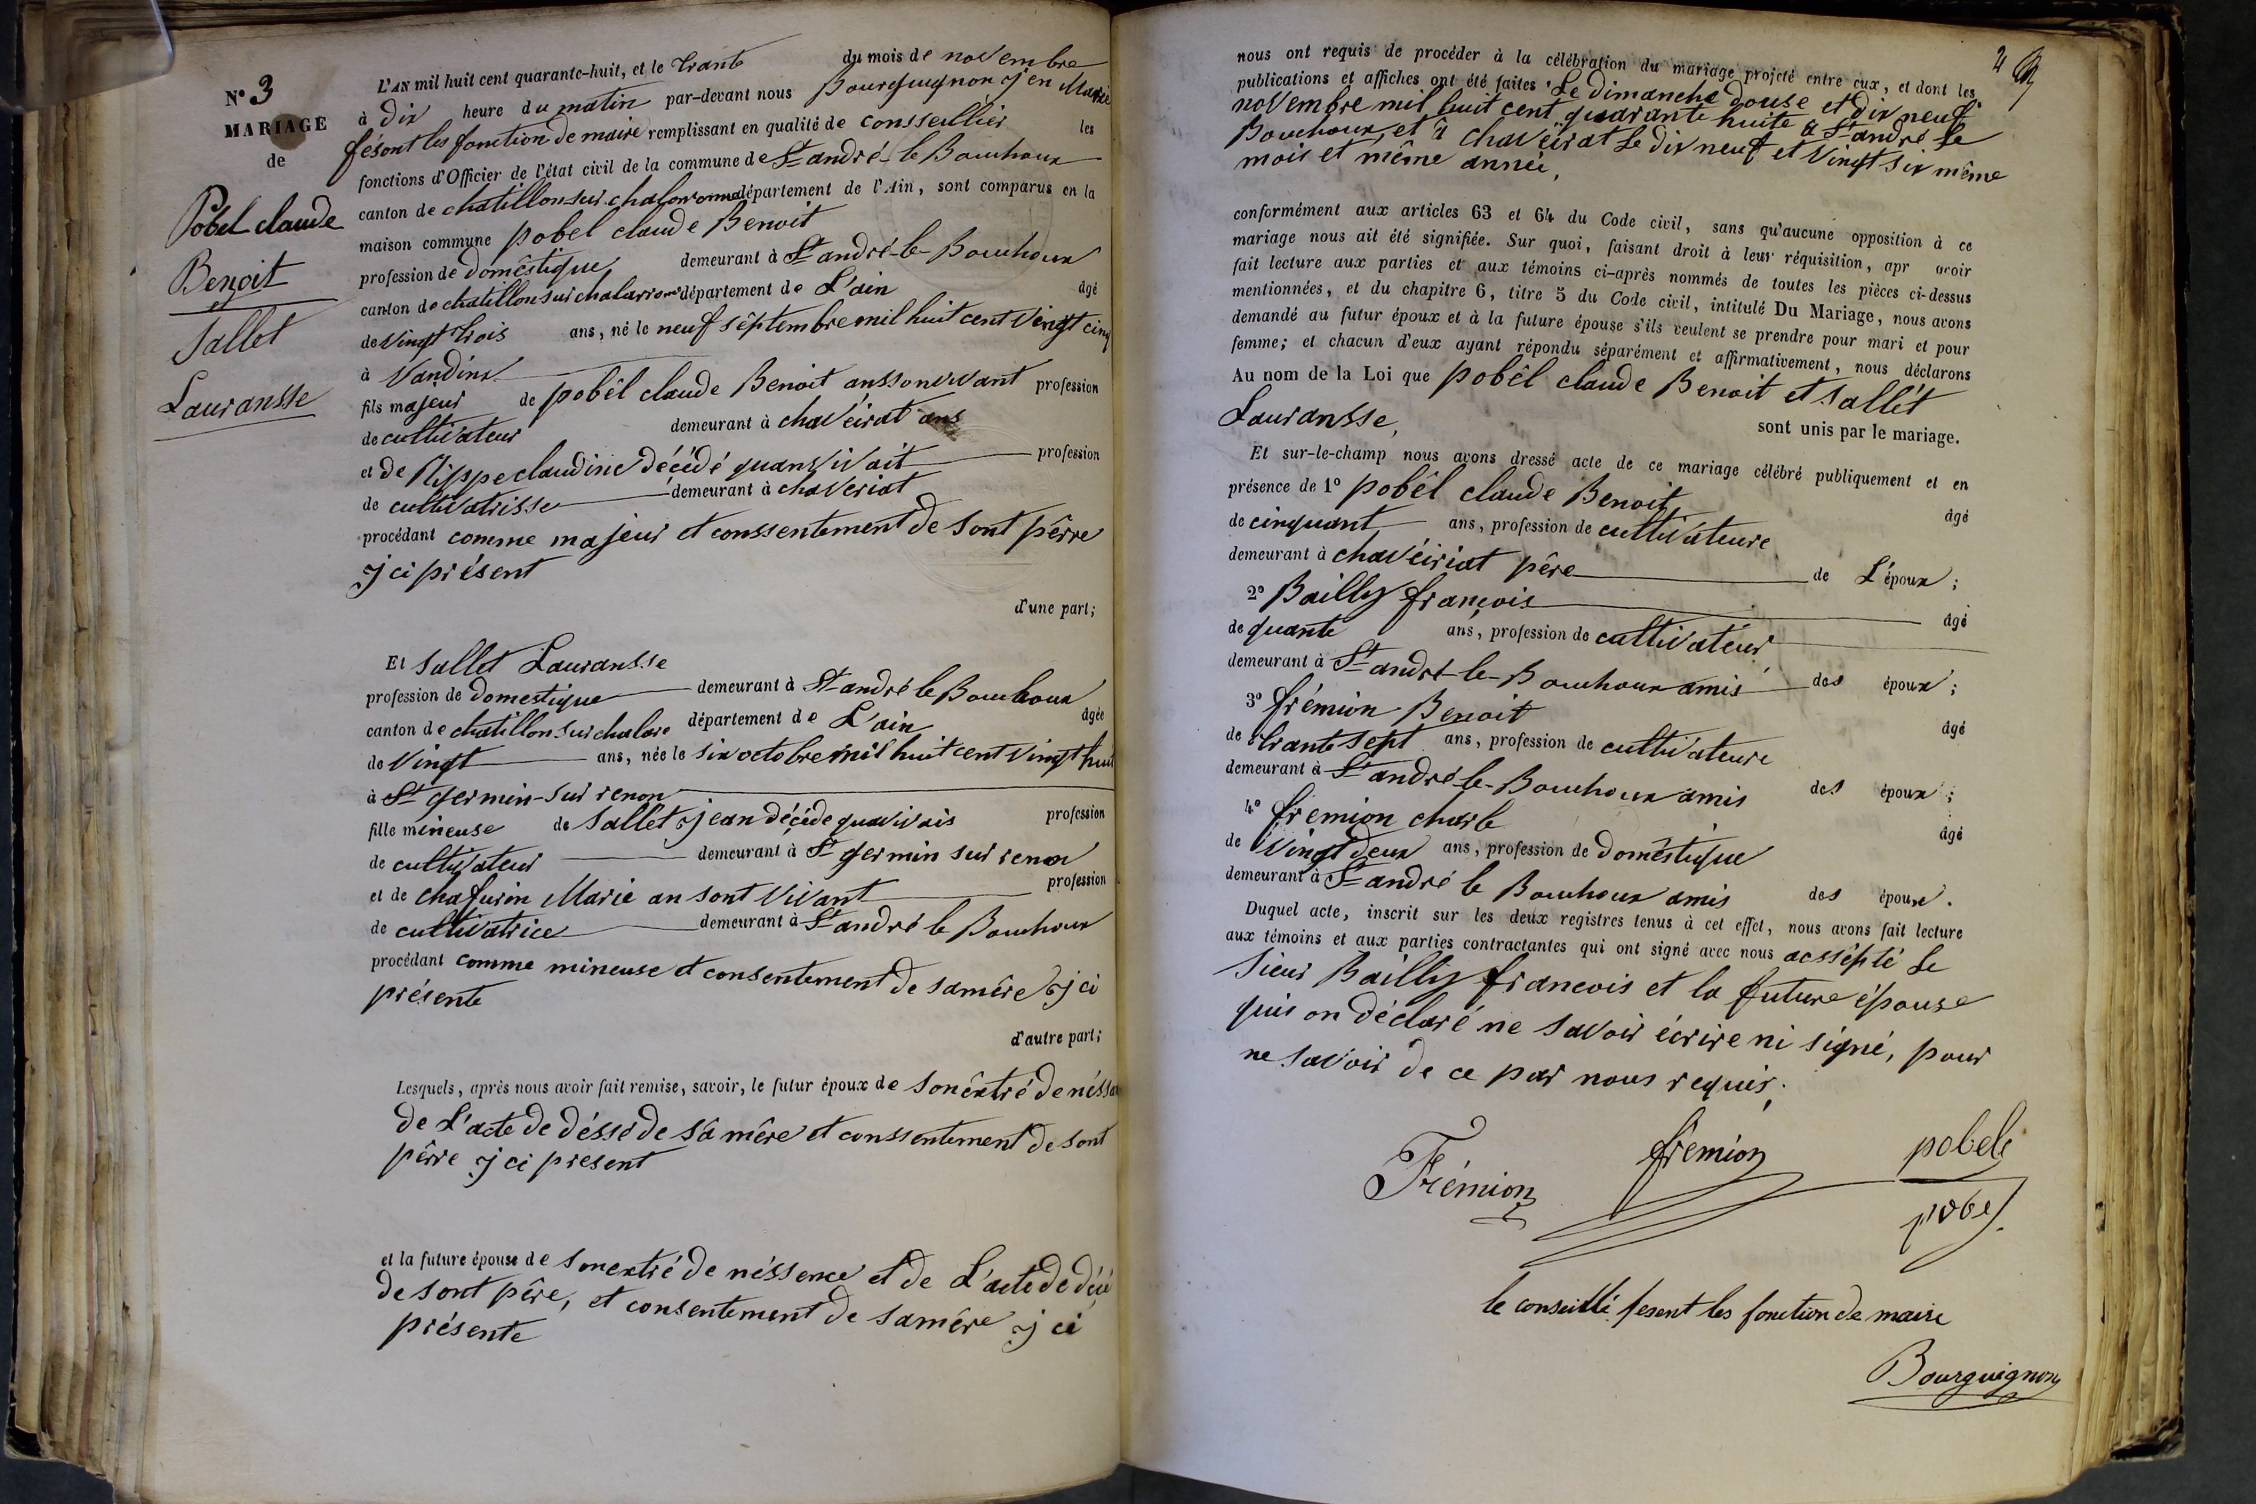 N° 3
MARIAGE
de
Pobel claude
Benoit
et
Sallet
Lauransse
L'AN mil huit cent quarante-huit, et le trante du mois de novembre
à dix heure du matin par-devant nous Bourguignon jen Marie
fésont les fonction de maire remplissant en qualité de consseillier les
fonctions d'Officier de l'état civil de la commune de St andré-le-Bouchoux
canton de chatillon sur chalaronne département de l'Ain, sont comparus en la
maison commune pobel claude Benoit
profession de doméstique demeurant à St andré-le-Bouchoux
canton de chatillon sur chalaronne département de L'ain âgé
de vingt trois ans, né le neuf séptembre mil huit cent vingt cinq
à Vandins
fils majeur de pobêl claude Benoit anssonvivant profession
de cultivateur demeurant à chavéirat ans
et de Nippe claudine décédé quanvivait profession
de cultivatrisse demeurant à chaveriat
procédant comme majeur et conssentement de sont pêrre
jci présent
d'une part;
Et Sallet Lauransse
profession de domestique demeurant à St andré le Bouchoux
canton de chatillon sur chalare département de L'ain âgée
de vingt ans, née le six octobre mil huit cent vingt huit
à St germin-sur renon
fille mineuse de Sallet jean décéde quavivais profession
de cultivateur demeurant à St germin sur renon
et de chafurin Marie an sont vivant profession
de cultivatrice demeurant à St andré le Bouchoux
procédant comme mineuse et consentement de samére jci
présente
d'autre part;
Lesquels, après nous avoir fait remise, savoir, le futur époux de sonêxtré de néssan
de L'acte de déssé de sâ mêre et conssentement de sont
pêrre jci present
et la future épouse de sonextré de néssence et de L'acte de décé
de sont pêre, et consentement de samére jci
présente
2
nous ont requis de procéder à la célébration du mariage projeté entre eux, et dont les
publications et affiches ont été faites Le dimanche douse et dix neuf
novembre mil huit cent quarante huite à St andré le
Bouchoux, et à chavéirat Le dix neuf et vingt six même
mois et même année,
conformément aux articles 63 et 64 du Code civil, sans qu'aucune opposition à ce
mariage nous ait été signifiée. Sur quoi, faisant droit à leur réquisition, apr avoir
fait lecture aux parties et aux témoins ci-après nommés de toutes les pièces ci-dessus
mentionnées, et du chapitre 6, titre 5 du Code civil, intitulé Du Mariage, nous avons
demandé au futur époux et à la future épouse s'ils veulent se prendre pour mari et pour
femme; et chacun d'eux ayant répondu séparément et affirmativement, nous déclarons
Au nom de la Loi que pobêl claude Benoit et Sallét
Lauransse, sont unis par le mariage.
Et sur-le-champ nous avons dressé acte de ce mariage célébré publiquement et en
présence de 1° pobêl claude Benoit âgé
de cinquant ans, profession de cultivateure
demeurant à chavéiriat pêre de L'époux;
2° Bailly françois âgé
de quante ans, profession de cultivatéur
demeurant à St andré-le-Bouchoux amis des époux;
3° frémion Benoit âgé
de trante sept ans, profession de cultivateure
demeurant à St andré-le-Bouchoux amis des époux;
4° fremion charle âgé
de vingt deux ans, profession de doméstique
demeurant à St andré le Bouchoux amis des épouxe.
Duquel acte, inscrit sur les deux registres tenus à cet effet, nous avons fait lecture
aux témoins et aux parties contractantes qui ont signé avec nous acssépté Le
sieur Bailly francois et la future épouse
quis on déclaré ne savoir écrire ni signé, pour
ne savoir de ce par nous requis;
Frémion fremion pobele
pobel
le conseillé fesent les fonction de maire
Bourguignon